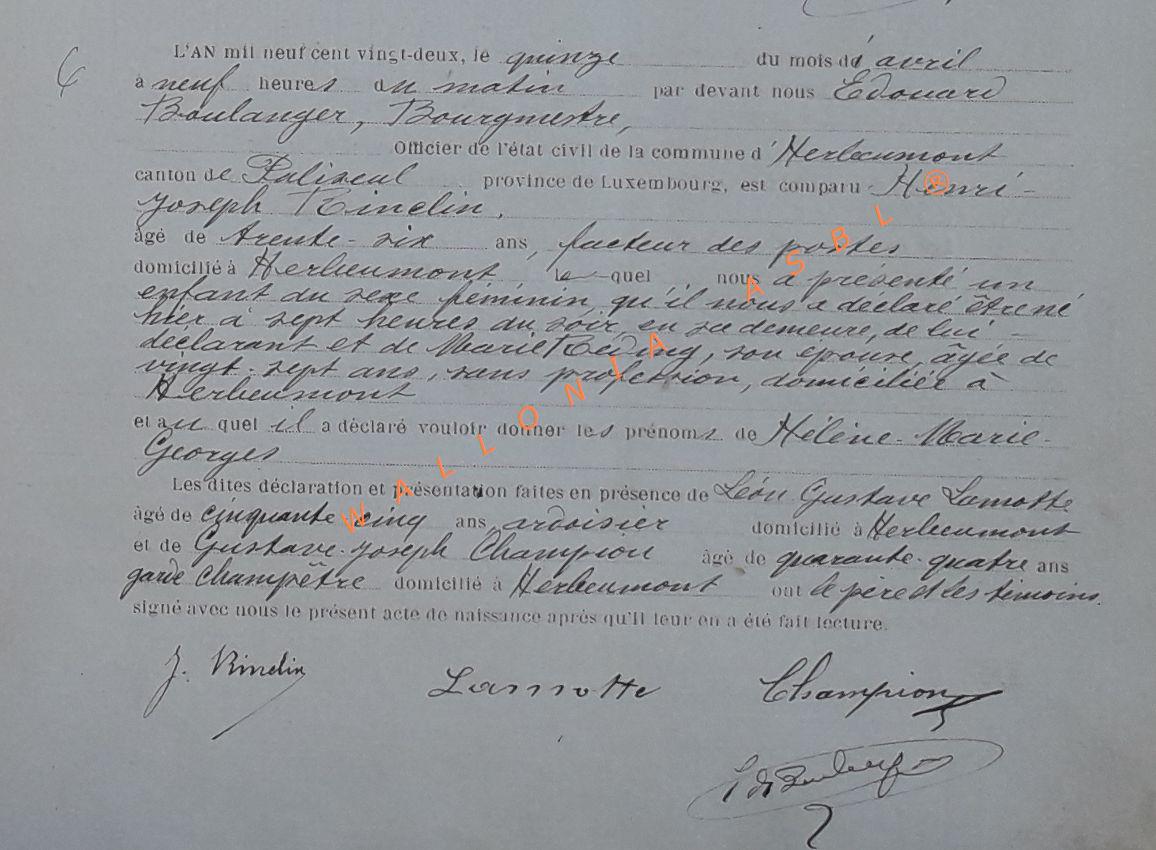 6
L'AN mil neuf cent vingt-deux, le quinze du mois d' avril
à neuf heures du matin par devant nous Edouard
Boulanger, Bourgmestre,
Officier de l'état civil de la commune d'Herbeumont
canton de Paliseul province de Luxembourg, est comparu Henri-
Joseph Rinclin,
âgé de trente-six ans, facteur des postes
domicilié à Herbeumont lequel nous a présenté un
enfant du sexe féminin, qu'il nous a déclaré être né
hier à sept heures du soir, en sa demeure, de lui -
déclarant et de Marie Reding, son épouse, âgée de
vingt-sept ans, sans profession, domiciliée à
Herbeumont
et au quel il a déclaré vouloir donner les prénoms de Hélène-Marie-
Georges
Les dites déclaration et présentation faites en présence de Léon Gustave Lamotte
âgé de cinquante cinq ans, ardoisier domicilié à Herbeumont
et de Gustave-Joseph Champion âgé de quarante-quatre ans
garde champêtre domicilié à Herbeumont ont le père et les témoins
signé avec nous le présent acte de naissance après qu'il leur en a été fait lecture.
J. Rinclin Lamotte Champion
WALLONIA ASBL ®